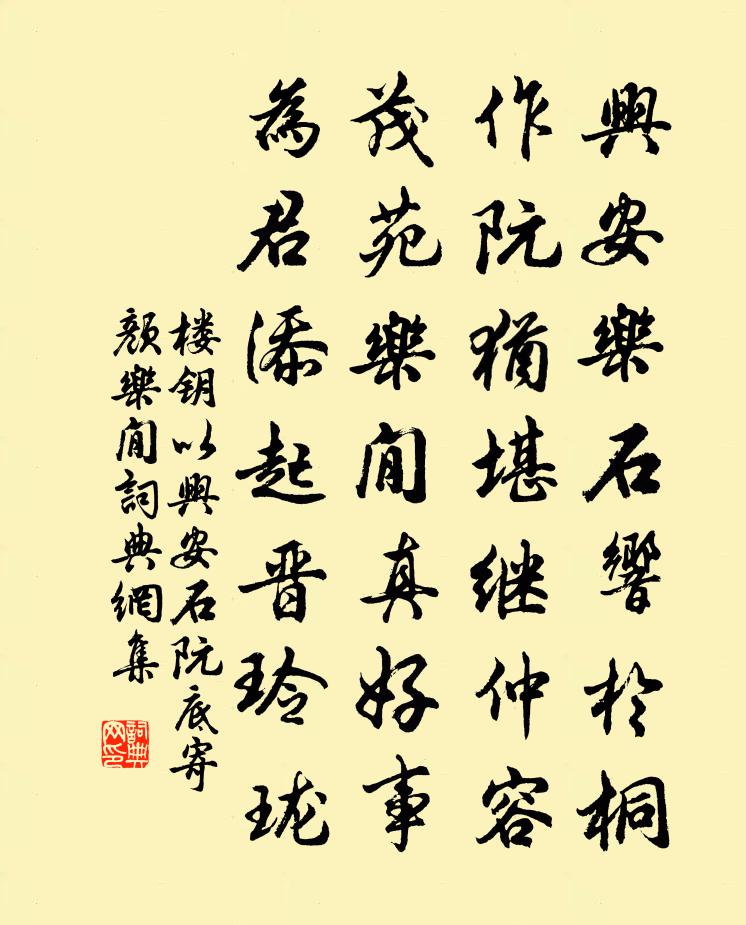 興安樂石響於桐
作阮猶堪继仲容
茂苑樂閒真好事
為君添起晋玲珑
楼钥以興安石阮底寄
顏樂閒詞典網集
詞典
网印